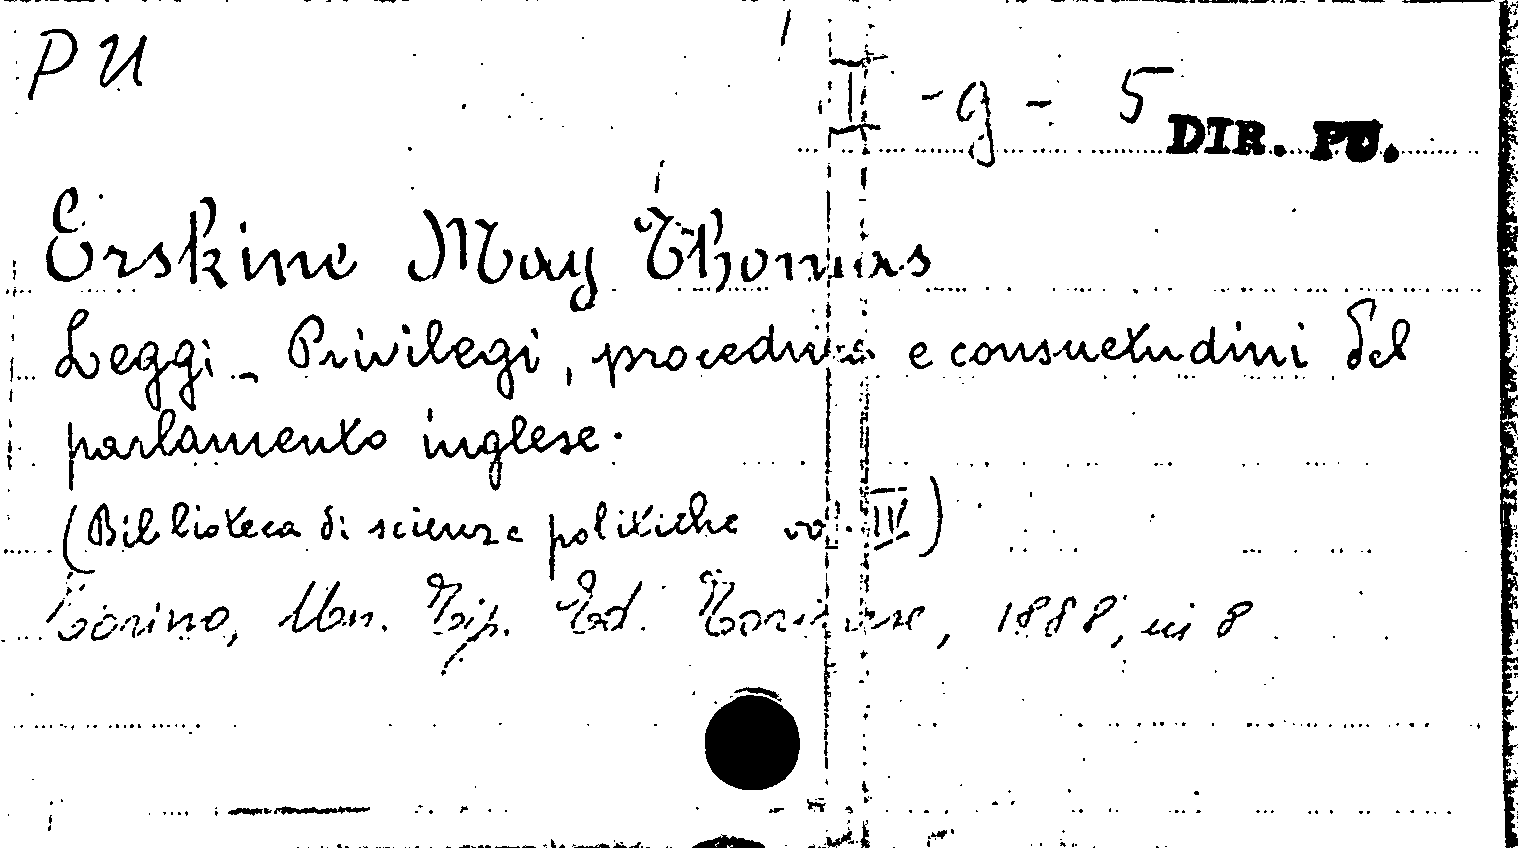 PU
I - g - 5 DIR. PU.
Erskine May Thomas
Leggi - Privilegi, procedura e consuetudini del
parlamento inglese.
(Biblioteca di scienze politiche vol. IV)
Torino, Un. Tip. Ed. Torinese, 1888, in 8